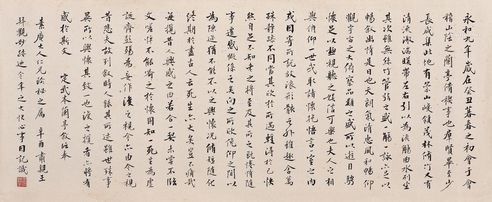 永和九年歲在癸丑暮春之初會于會
稽山陰之蘭亭脩禊事也羣賢畢至少
長咸集此地有崇山峻領茂林脩竹又有
清流激湍暎帶左右引以為流觴曲水列坐
其次雖無絲竹管弦之盛一觴一詠亦足以
暢敘幽情是日也天朗氣清惠風和暢仰
觀宇宙之大俯察品類之盛所以遊目騁
懷足以極視聽之娛信可樂也夫人之相
與俯仰一世或取諸懷抱悟言一室之內
或因寄所託放浪形骸之外雖趣舍萬
殊靜躁不同當其欣於所遇暫得於己快
然自足不知老之將至及其所之既倦情隨
事遷感慨係之矣向之所欣俛仰之間以
為陳迹猶不能不以之興懷況脩短隨化
終期於盡古人云死生亦大矣豈不痛哉
每攬昔人興感之由若合一契未嘗不臨
文嗟悼不能喻之於懷固知一死生為虛
誕齊彭殤為妄作後之視今亦由今之視
昔悲夫故列敘時人錄其所述雖世殊事
異所以興懷其致一也後之攬者亦將有
感於斯文 定武本蘭亭
大人仁兄之屬 辛酉 肅親王
觀妙今年之大快心事因記識